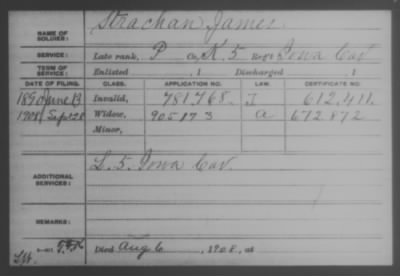 NAME OF SOLDIER: Strachan James
SERVICE: Late rank, P Co. K, 5 Reg't Iowa Cav
TERM OF SERVICE: Enlisted , 1 Discharged , 1
DATE OF FILING. CLASS. APPLICATION NO. LAW. CERTIFICATE NO.
1890 June 13 Invalid, 781,768. J 612,411.
1908 Sept 28 Widow, 905173 a 672872
Minor,
ADDITIONAL SERVICES: L. 5. Iowa Cav.
REMARKS:
Died Aug 6, 1908, at